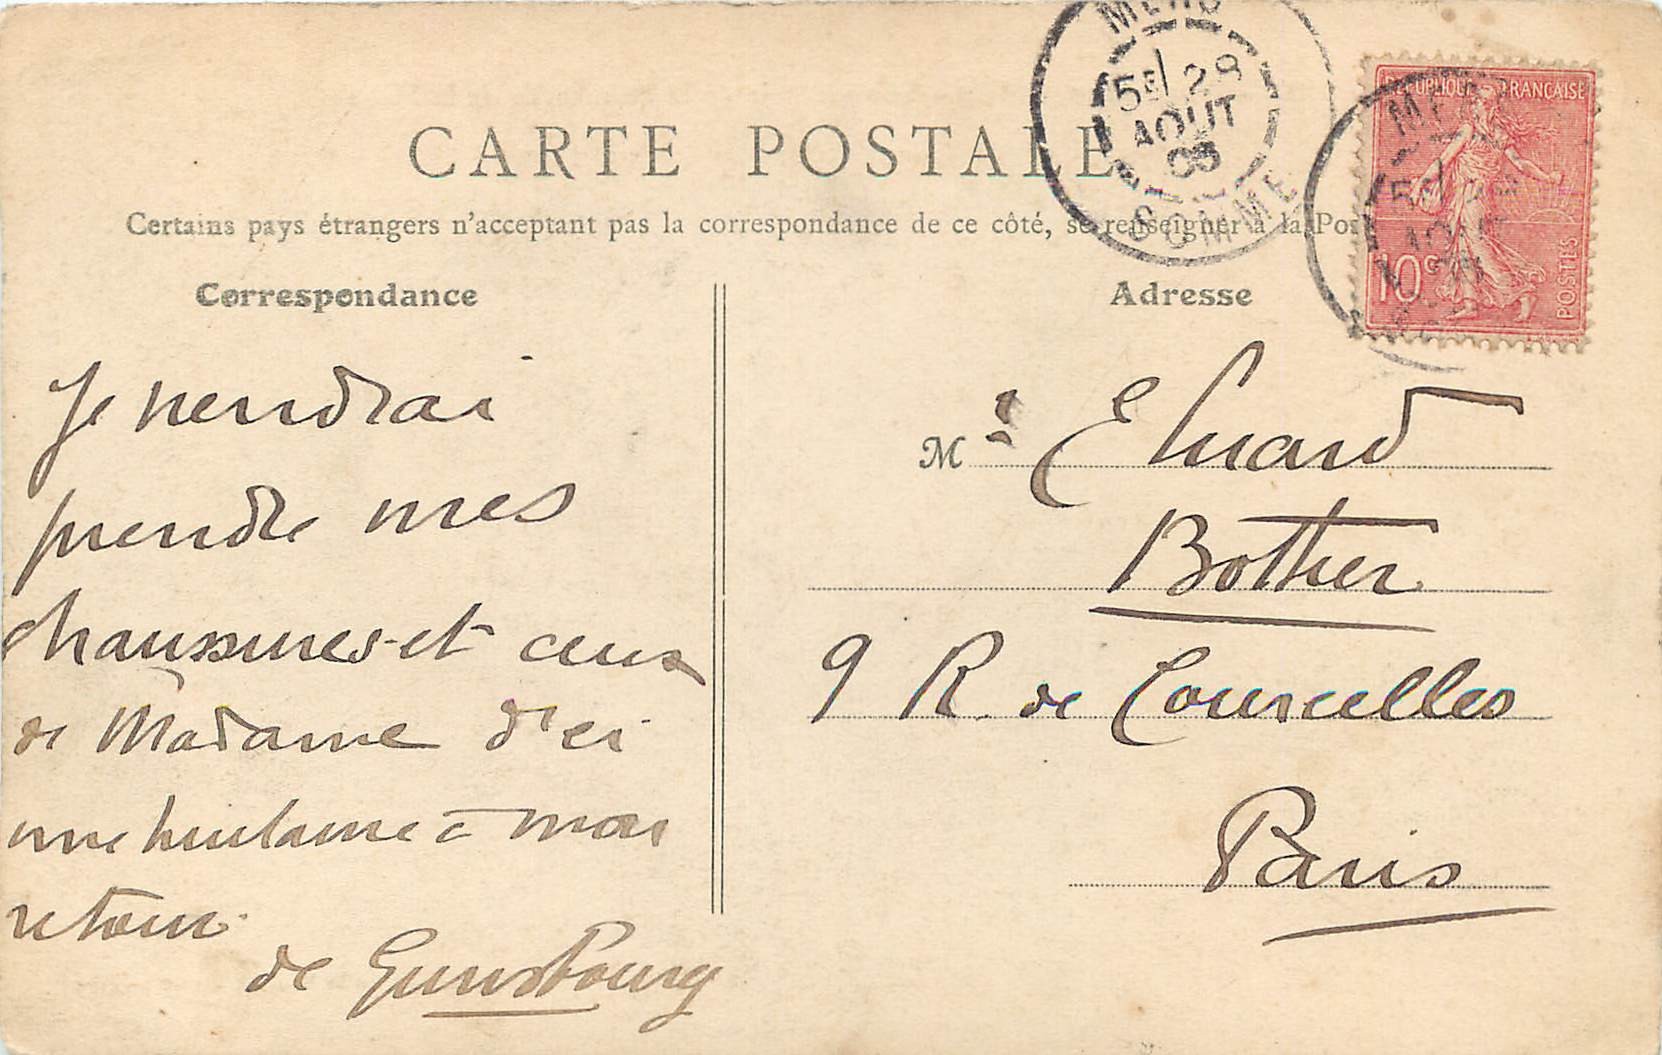 CARTE POSTALE
Certains pays étrangers n'acceptant pas la correspondance de ce côté, se renseigner à la Pos
Correspondance
Adresse
Je viendrai
prendre mes
chaussures et ceux
de Madame d'ici
une huitaine à mon
retour.
de Gunsbourg
Mr
Bother
9 R. de Courcelles
Paris
5E 28
AOUT
05
SOMME
REPUBLIQUE FRANÇAISE
10c
POSTES